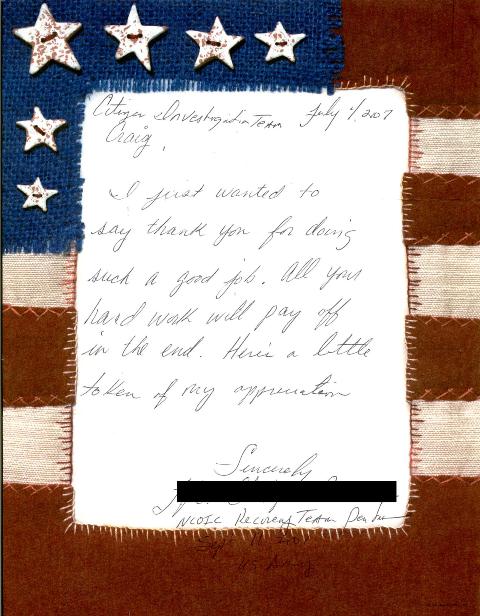 Citizen Investigation Team July 4/2007
Craig,
I just wanted to
say thank you for doing
such a good job. All your
hard work will pay off
in the end. Here's a little
token of my appreciation
Sincerely
NCOIC Recovery Team
US Army